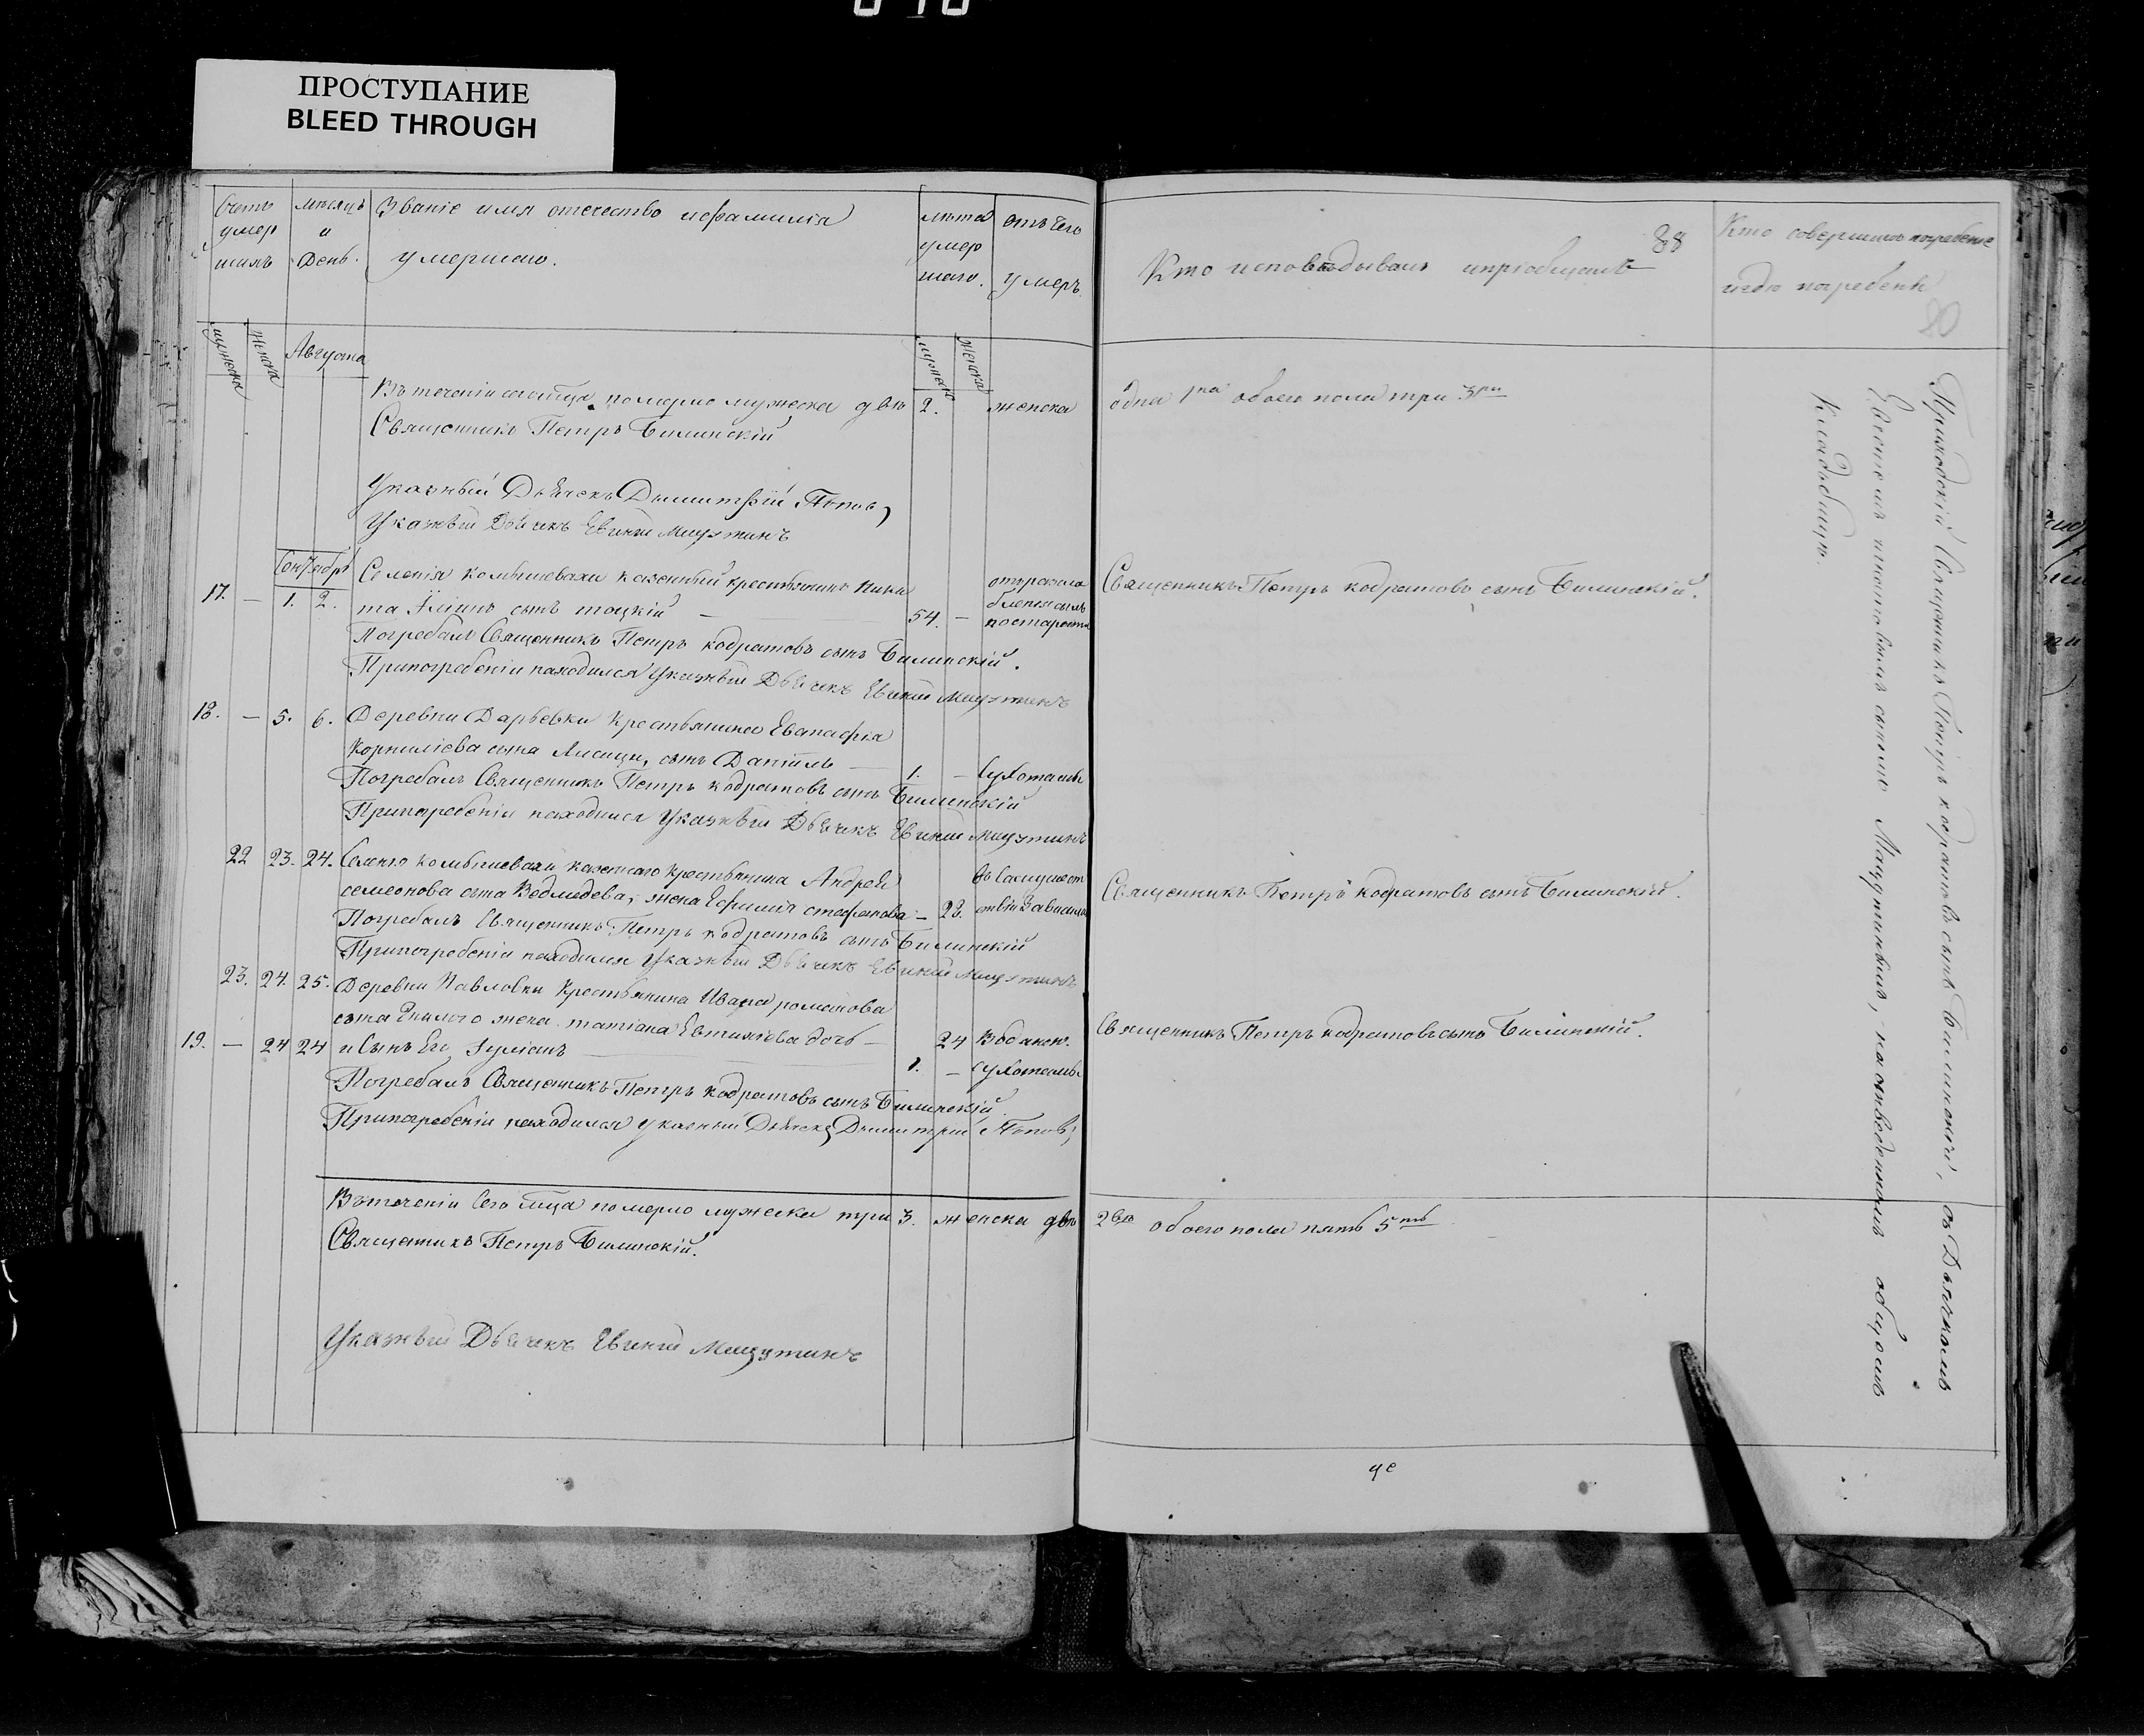 ПРОСТУПАНИЕ
BLEED THROUGH
Счетъ умер шихъ
мѣсяцъ и День.
Званіе имя отечество и фамилія умершаго.
лѣта умер шаго.
отъ чего умеръ.
88
Кто исповѣдывалъ и пріобщалъ
Кто совершилъ погребеніе и гдѣ погребенъ
мужеска
женска
Августа
мужеска
женска
Въ теченіи сего мца померло мужеска двѣ 2. женска одна 1на обоего пола три 3ри
Священникъ Петръ Билинскій
Указный Дьячекъ Димитрій Поповъ
Указный Дьячекъ Евфимій
Сентябрь
17. — 1. 2. Селенія Комышевахи казенный крестьянинъ Ники
та сынъ тоцкій — 54. —
Священникъ Петръ кодратовъ сынъ Билинскій.
Погребалъ Священникъ Петръ кодратовъ сынъ Билинскій.
При погребеніи находился Указный Дьячекъ
18. — 5. 6. Деревни Дарьевки Крестьянина Евпатія
Корниліева сына Лисици, сынъ Даніилъ — 1. — Сухотами
Погребалъ Священникъ Петръ кодратовъ сынъ Билинскій
При погребеніи находился Указный Дьячекъ
22 23. 24. Селенія комышевахи казеннаго крестьянина Андрея
семеонова сына Ведмедева, жена Ефимія стефанова — 22.
Священникъ Петръ кодратовъ сынъ Билинскій.
Погребалъ Священникъ Петръ кодратовъ сынъ Билинскій
При погребеніи находился Указный Дьячекъ
23. 24. 25. Деревни Павловки Крестьянина Ивана романова
сына жена татіана Евтихіева дочь — 24 Водяною.
Священникъ Петръ кодратовъ сынъ Билинскій.
19. — 24 24 и Сынъ Его Іуліанъ 1. — Сухотами
Погребалъ Священникъ Петръ кодратовъ сынъ Билинскій.
При погребеніи находился указный Дьячекъ Димитрій Поповъ
Въ теченіи Сего мца померло мужеска три 3. женска двѣ 2вѣ обоего пола пять 5ть
Священникъ Петръ Билинскій.
Указный Дьячекъ
Приходскій Священникъ Петръ кодратовъ сынъ Билинскій, съ Дьячкомъ
на отведенномъ общомъ
Кладьбищи.